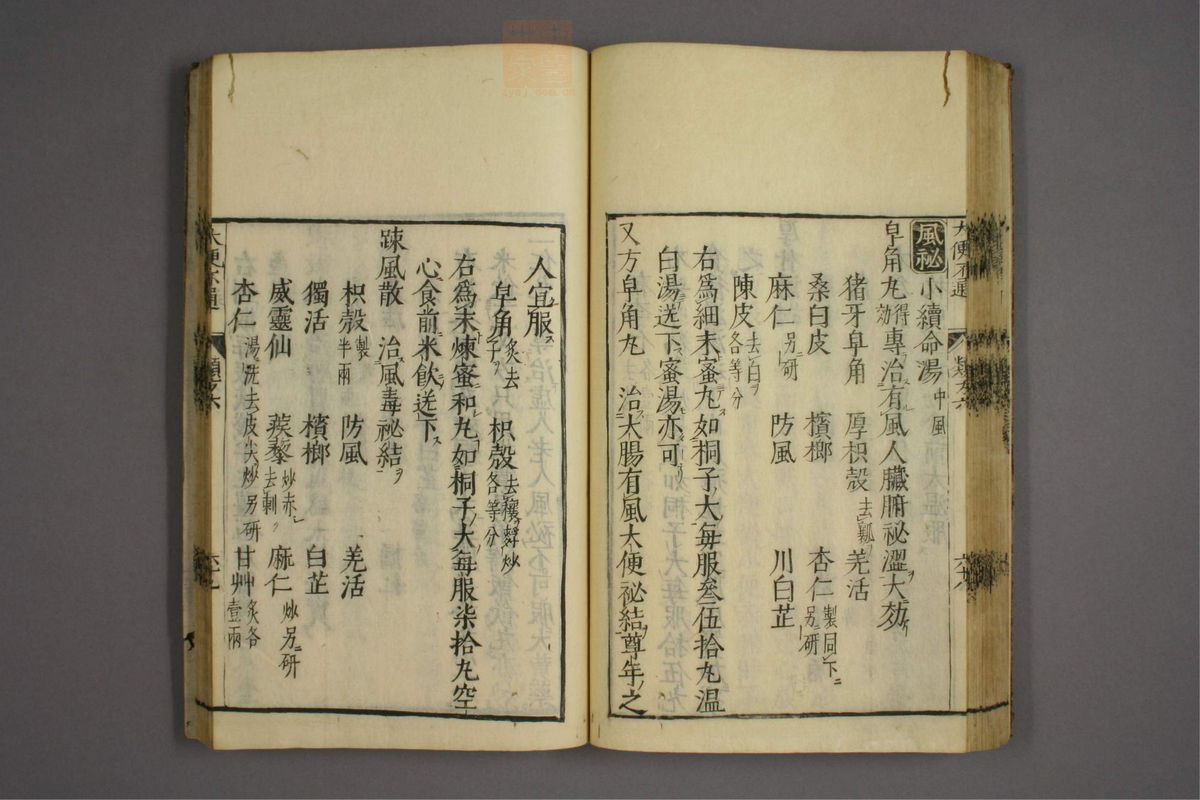 風祕 小續命湯 中風
皁角丸 得効 專治有風人臟腑祕澀大効
猪牙皁角 厚枳殼 去瓤 羌活
桑白皮 檳榔 杏仁 製同下另研
麻仁 另研 防風 川白芷
陳皮 去白各等分
右爲細末蜜丸如桐子大每服叁伍拾丸温
白湯送下蜜湯亦可
又方皁角丸 治大腸有風大便祕結尊年之
人宜服
皁角 炙去子 枳殼 去穰麩炒各等分
右爲末煉蜜和丸如桐子大每服柒拾丸空
心食前米飲送下
踈風散 治風毒祕結
枳殼 製半兩 防風 羌活
獨活 檳榔 白芷
威靈仙 蒺藜 炒赤去刺 麻仁 炒另研
杏仁 湯洗去皮尖炒另研 甘艸 炙各壹兩